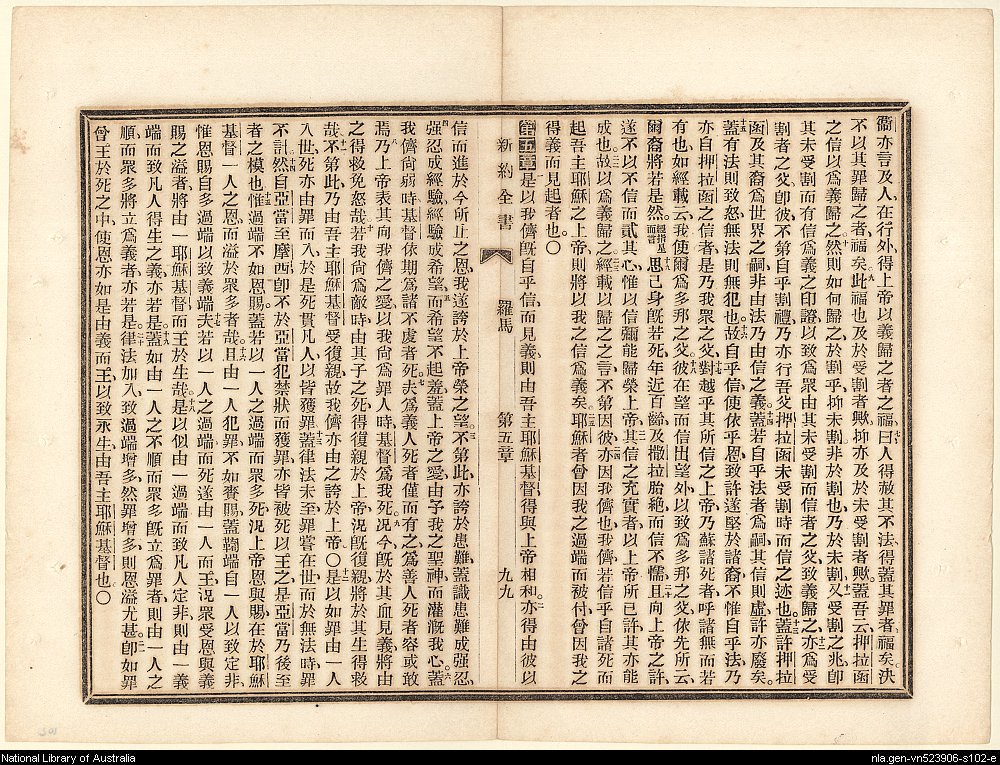 衞亦言及人在行外得上帝以義歸之者之福曰人得赦其不法得蓋其罪者福矣決
不以其罪歸之者福矣此福也及於受割者歟抑亦及於未受割者歟蓋吾云押拉函
之信以爲義歸之然則如何歸之於割乎抑未割非於割也乃於未割又受割之兆卽
其未受割而有信爲義之印證以致爲眾由其未受割而信者之父致義歸之亦爲受
割者之父卽彼不第自乎割禮乃亦行吾父押拉函未受割時而信之迹也蓋許押拉
函及其裔爲世界之嗣非由法乃由信之義蓋若自乎法者爲嗣其信則虛許亦廢矣
蓋有法則致怒無法則無犯也故自乎信使依乎恩致許遂堅於諸裔不惟自乎法乃
亦自押拉函之信者是乃我眾之父對越乎其所信之上帝乃蘇諸死者呼諸無而若
有也如經載云我使爾爲多邦之父彼在望而信出望外以致爲多邦之父依先所云
爾裔將若是然經指星而言思己身旣若死年近百齡及撒拉胎絶而信不懦且向上帝之許
遂不以不信而貳其心惟以信彌能歸榮上帝其信之充實者以上帝所已許其亦能
成也故以爲義歸之經載以歸之之言不第因彼亦因我儕也我儕若信乎自諸死而
起吾主耶穌之上帝則將以我之信爲義矣耶穌者曾因我之過端而被付曾因我之
得義而見起者也〇
第五章是以我儕旣自乎信而見義則由吾主耶穌基督得與上帝相和亦得由彼以
新約全書 羅馬 第五章 九九
信而進於今所止之恩我遂誇於上帝榮之望不第此亦誇於患難蓋識患難成强忍
强忍成經驗經驗成希望而希望不起羞蓋上帝之愛由予我之聖神而灌漑我心蓋
我儕尙弱時基督依期爲諸不虔者死夫爲義人死者僅而有之爲善人死者容或敢
焉乃上帝表其向我儕之愛以我尙爲罪人時基督爲我死况今旣於其血見義將由
之得救免怒哉若我尙爲敵時由其子之死得復親於上帝况旣復親將於其生得救
哉不第此乃由吾主耶穌基督受復親故我儕亦由之誇於上帝〇是以如罪由一人
入世死亦由罪而入於是死貫凡人以皆獲罪蓋律法未至罪嘗在世而於無法時罪
不計然自亞當至摩西卽不於亞當犯禁狀而獲罪亦皆被死以王之是亞當乃後至
者之模也惟過端不如恩賜蓋若以一人之過端而眾多死况上帝恩與賜在於耶穌
基督一人之恩而溢於眾多者哉且由一人犯罪不如賚賜蓋鞫端自一人以致定非
惟恩賜自多過端以致義端夫若以一人之過端而死遂由一人而王况眾受恩與義
賜之溢者將由一耶穌基督而王於生哉是以似由一過端而致凡人定非則由一義
端而致凡人得生之義亦若是蓋如由一人之不順而眾多旣立爲罪者則由一人之
順而眾多將立爲義者亦若是律法加入致過端增多然罪增多則恩溢尤甚卽如罪
曾王於死之中使恩亦如是由義而王以致永生由吾主耶穌基督也〇
National Library of Australia
nla.gen-vn523906-s102-e